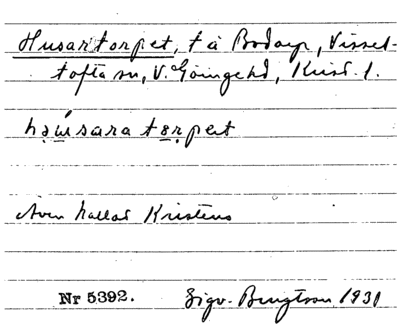 Husartorpet, t å Bodarp, Vissel-
tofta sn, V. Göinge hd, Krist. l.
hu̇sara tɛrpet
Även kallat Kristens
Nr 5392.
Sigv. Bengtsson 1931